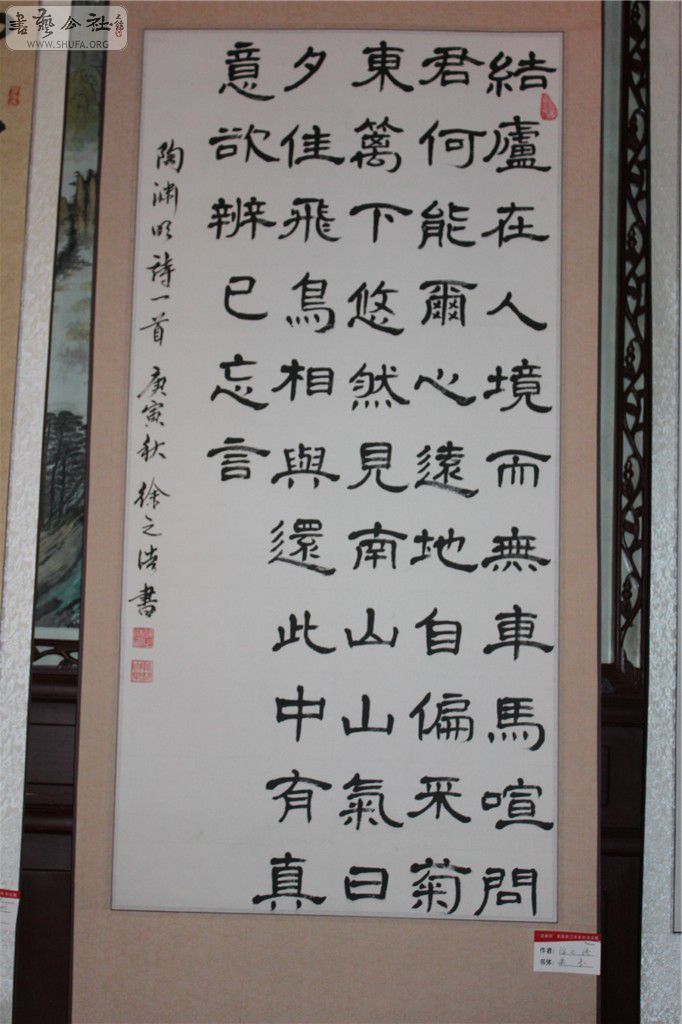 結廬在人境而無車馬喧問
君何能爾心遠地自偏采菊
東籬下悠然見南山山氣日
夕佳飛鳥相與還此中有真
意欲辨已忘言
陶渊明詩一首 庚寅秋 徐之浩書
書藝公社
WWW.SHUFA.ORG
作者:
书体: